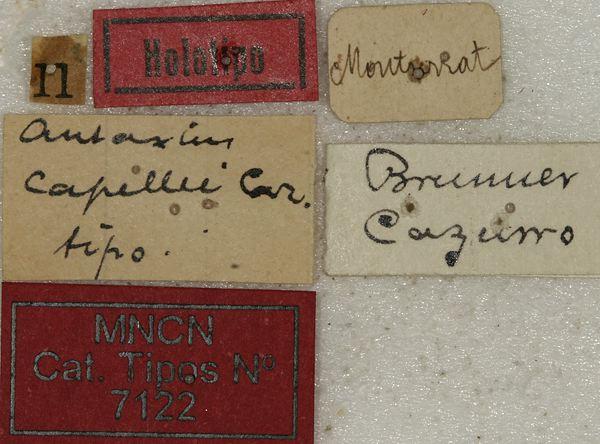 11
Holotipo
Montserrat
Antaxius
Capellei Caz.
tipo.
Brunner
Cazurro
MNCN
Cat. Tipos Nº
7122